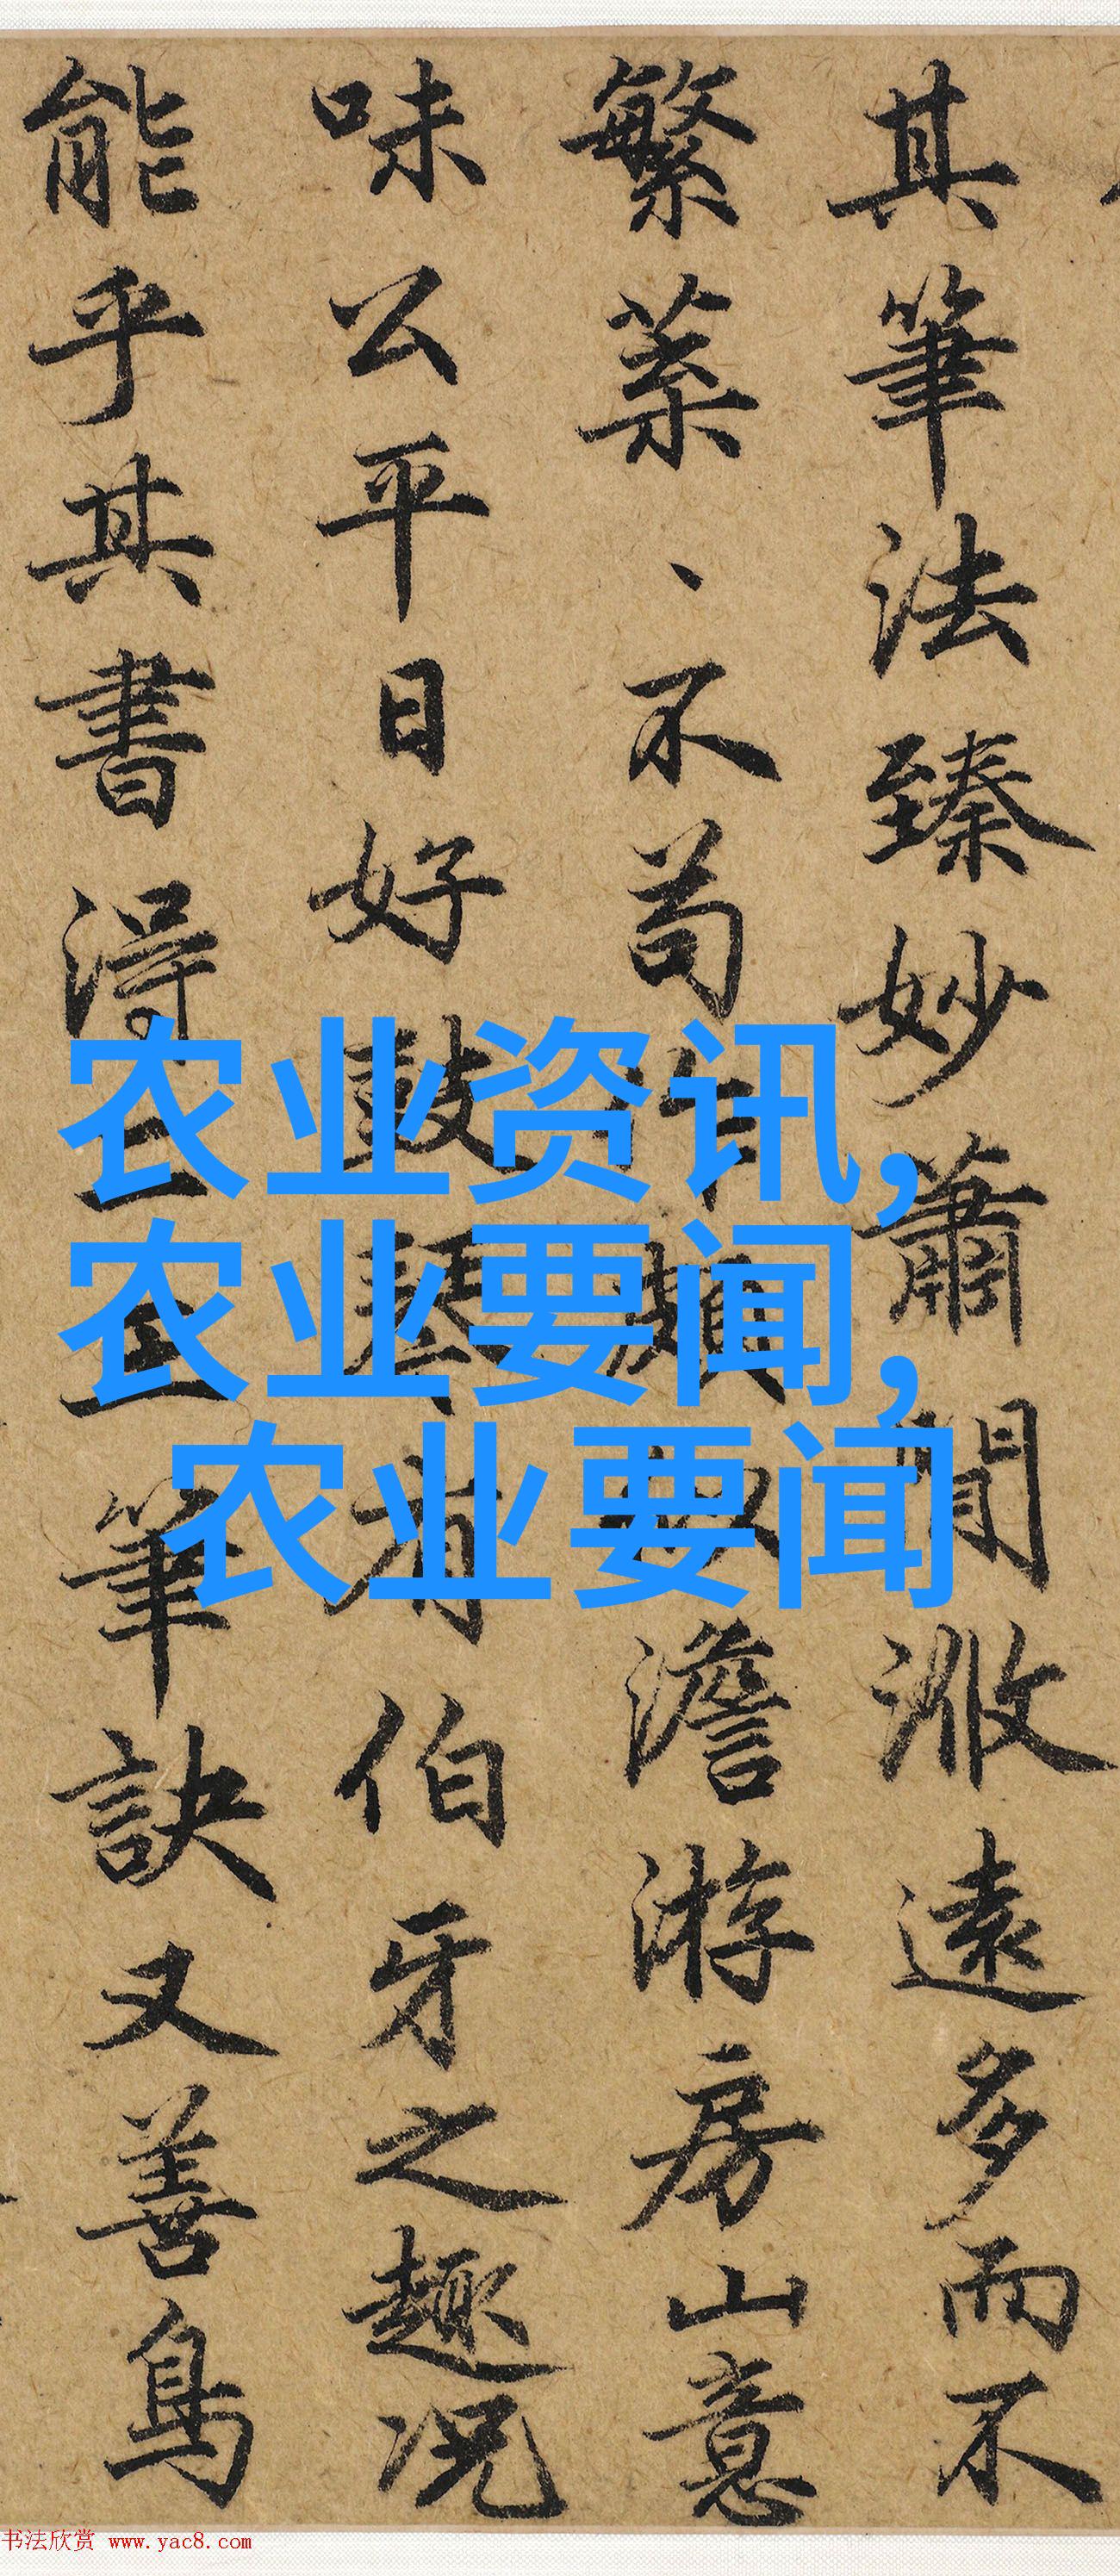 其筆法臻妙蕭閒澹遠多而不
繁菜、不苟
澹游房山意
味公平日好鼓琴有伯牙之趣况
能乎其書得
筆訣又善鳥
农业资讯,
农业要闻,
农业要闻
书法欣赏 www.yac8.com